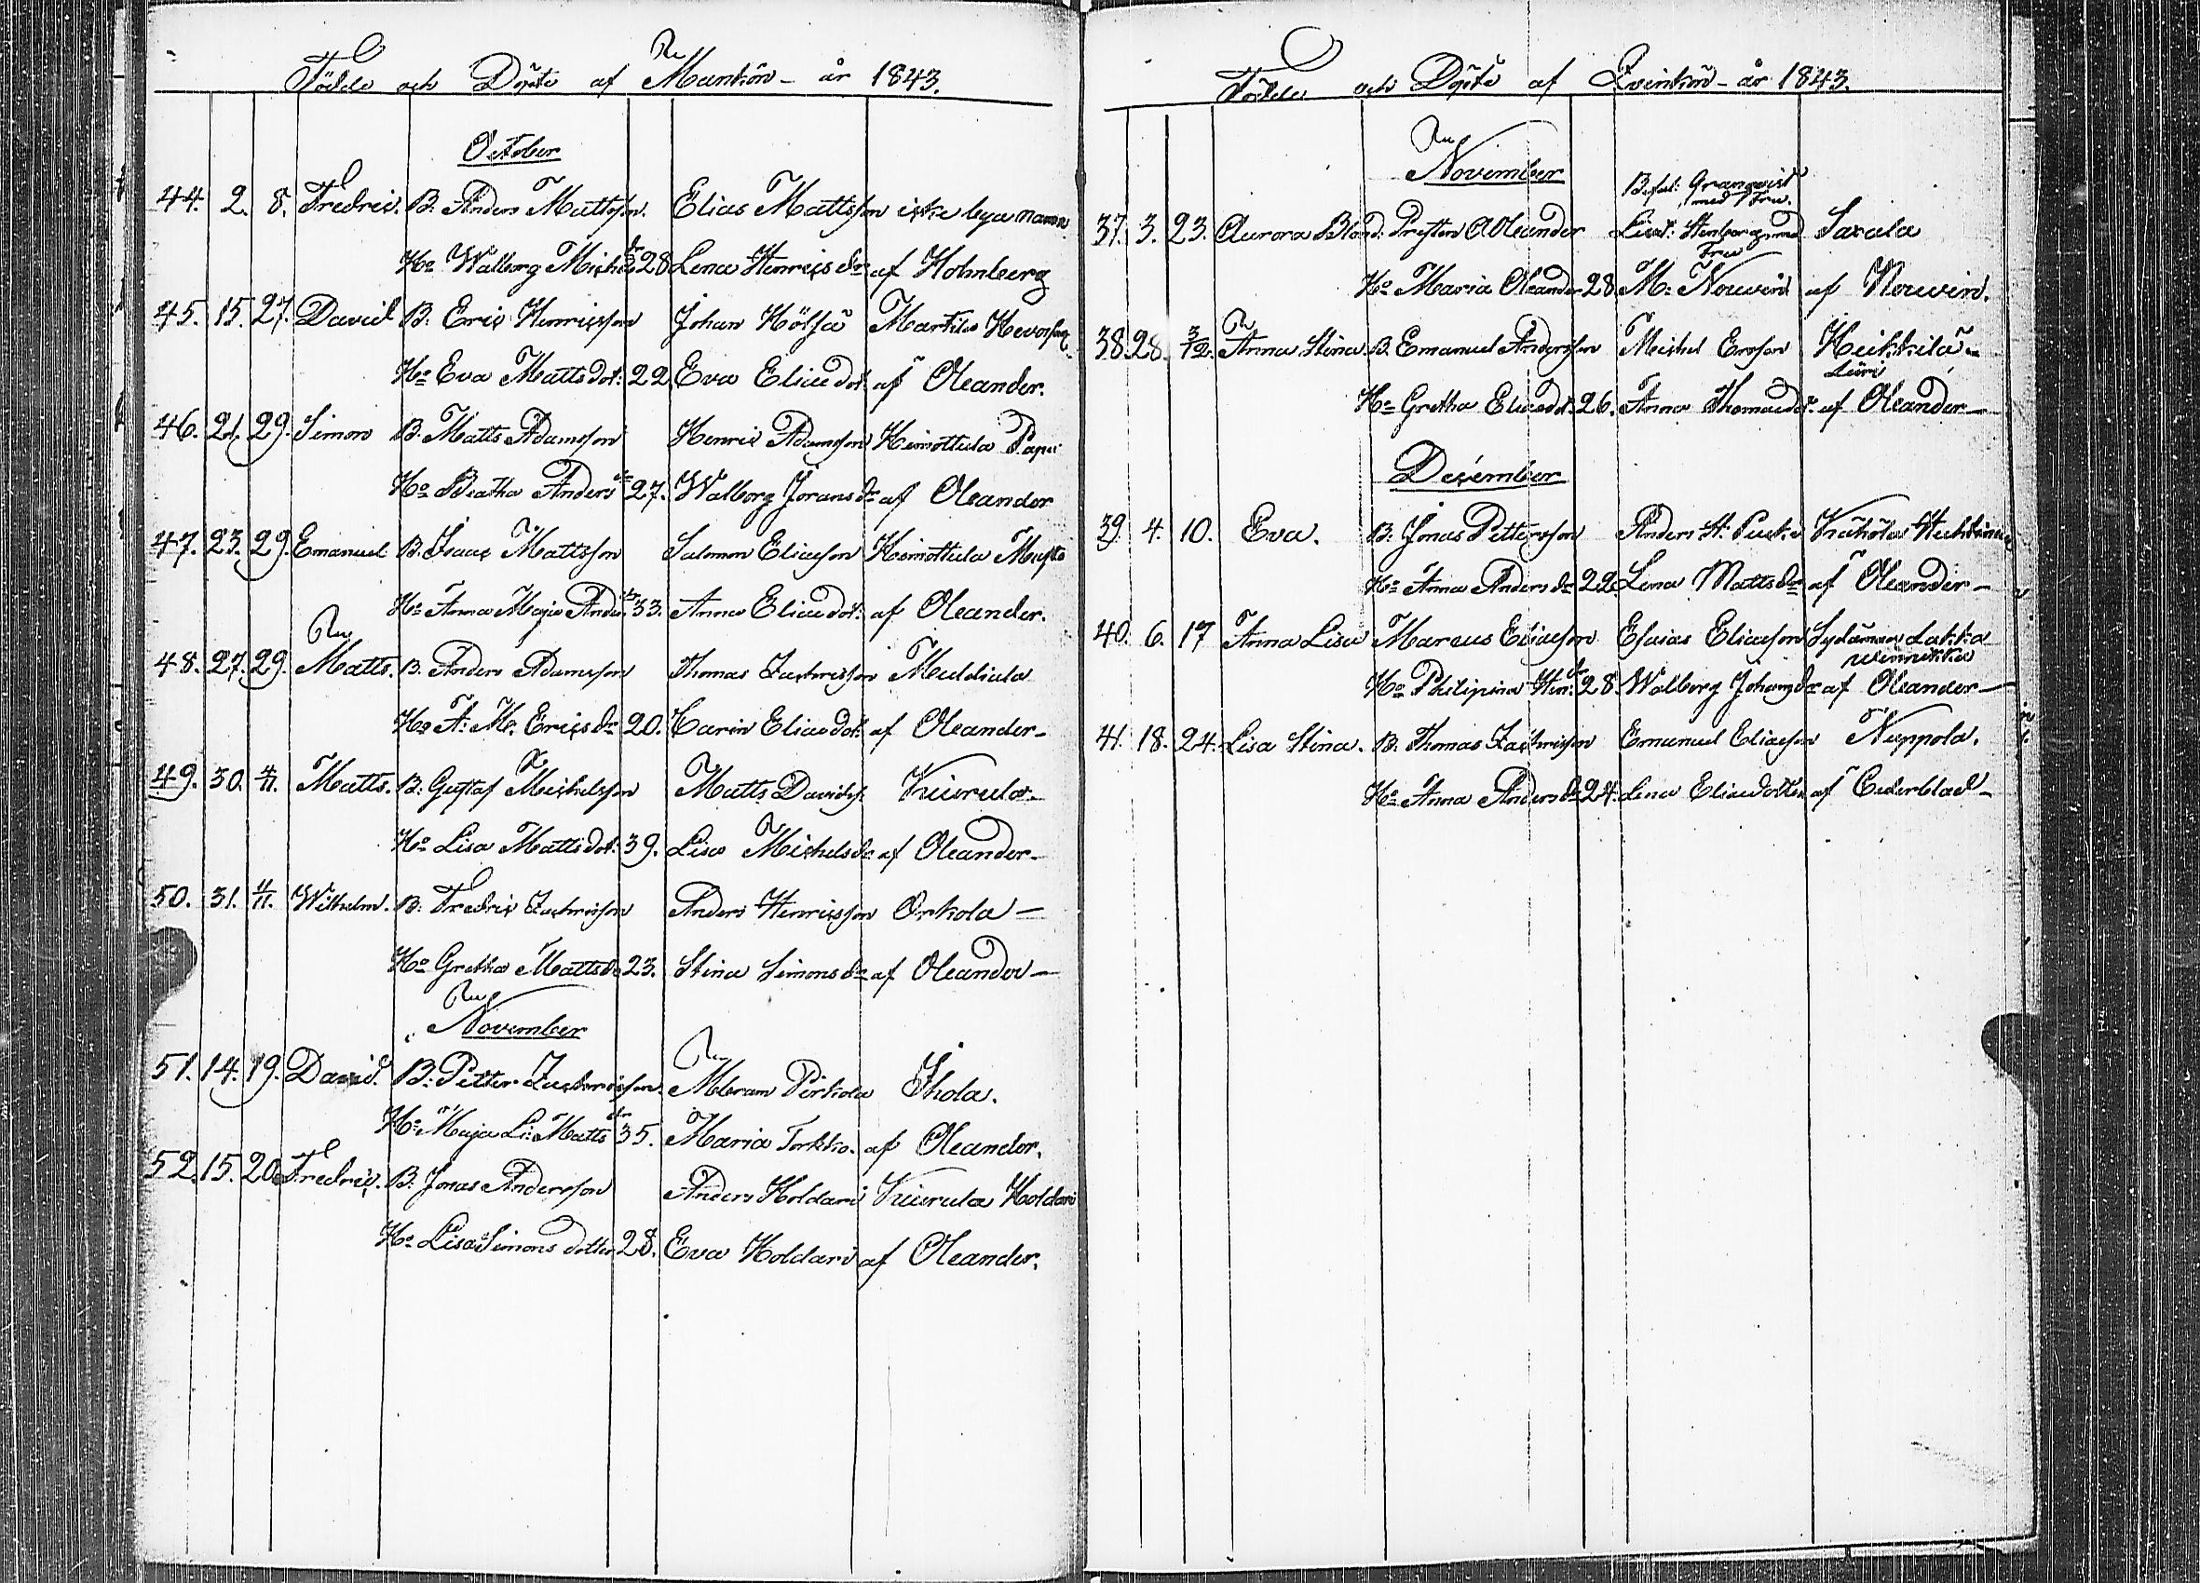 Födde och Döpte af Mankön - år 1843.
October
44. 2. 8. Fredric. B. Anders Mattsson. Elias Mattsson
Ho Walborg Michels dr 28 Lena Henrics dr af Holmberg
45. 15. 27. David B. Eric Henricsson Johan Hölsä Marttila
Ho Eva Matts dot: 22 Eva Elias dot. af Oleander.
46. 21. 29. Simon B. Matts Adamsson Henric Adamsson Heinottula Papu
Ho Beatha Anders dr 27. Walborg Jörans dr af Oleander
47. 23. 29. Emanuel B. Isaac Mattsson Salomon Eliasson Heinottula
Ho Anna Maja Anders dr 33. Anna Elias dot: af Oleander.
48. 27. 29. Matts. B. Anders Adamsson Thomas Zachrisson
Ho A: M. Erics dr 20. Carin Elias dot: af Oleander -
49. 30. 4/11. Matts. B. Gustaf Michelsson Matts Davidss. Kiurula -
Ho Lisa Matts dot: 39. Lisa Michels dr af Oleander -
50. 31. 4/11. Wilhelm. B. Fredric Zachrisson Anders Henricsson Orhola -
Ho Gretha Matts dr 23. Stina Simons dr af Oleander -
November
51. 14. 19. David. B. Petter Zachrisson. Abram Pirkola Ihola.
Ho Maja Li: Matts dr 35. Maria Torkko. af Oleander.
52. 15. 20. Fredric. B. Jonas Andersson Anders Holdari Kiurula Holdari
Ho Lisa Simons dotter 28. Eva Holdari af Oleander.
Födde och Döpte af Qvinkön - år 1843.
November
Befal: Granqvist
med Fru.
37. 3. 23. Aurora Bland. Presten A Oleander Lieut: Stenberg med Saxala
Fru
Ho Maria Oleander 28 M: Norvin af Norvin.
38. 28. 3/12. Anna Stina. B. Emanuel Andersson Michel Ersson Heikkilä -
Ho Gretha Elias dr 26. Anna Thomas dr. af Oleander -
December
39. 4. 10. Eva. B. Jonas Pettersson Anders
Ho Anna Anders dr 22 Lena Matts dr af Oleander -
40. 6. 17 Anna Lisa Marcus Eliasson Esaias Eliasson Lakka
Ho Philipina Hen: dr 28 Walborg Johans dr af Oleander -
41. 18. 24. Lisa Stina. B. Thomas Zachrisson Emanuel Eliasson Nuppola.
Ho Anna Anders dr 24. Lena Elias dotter af Cederblad -